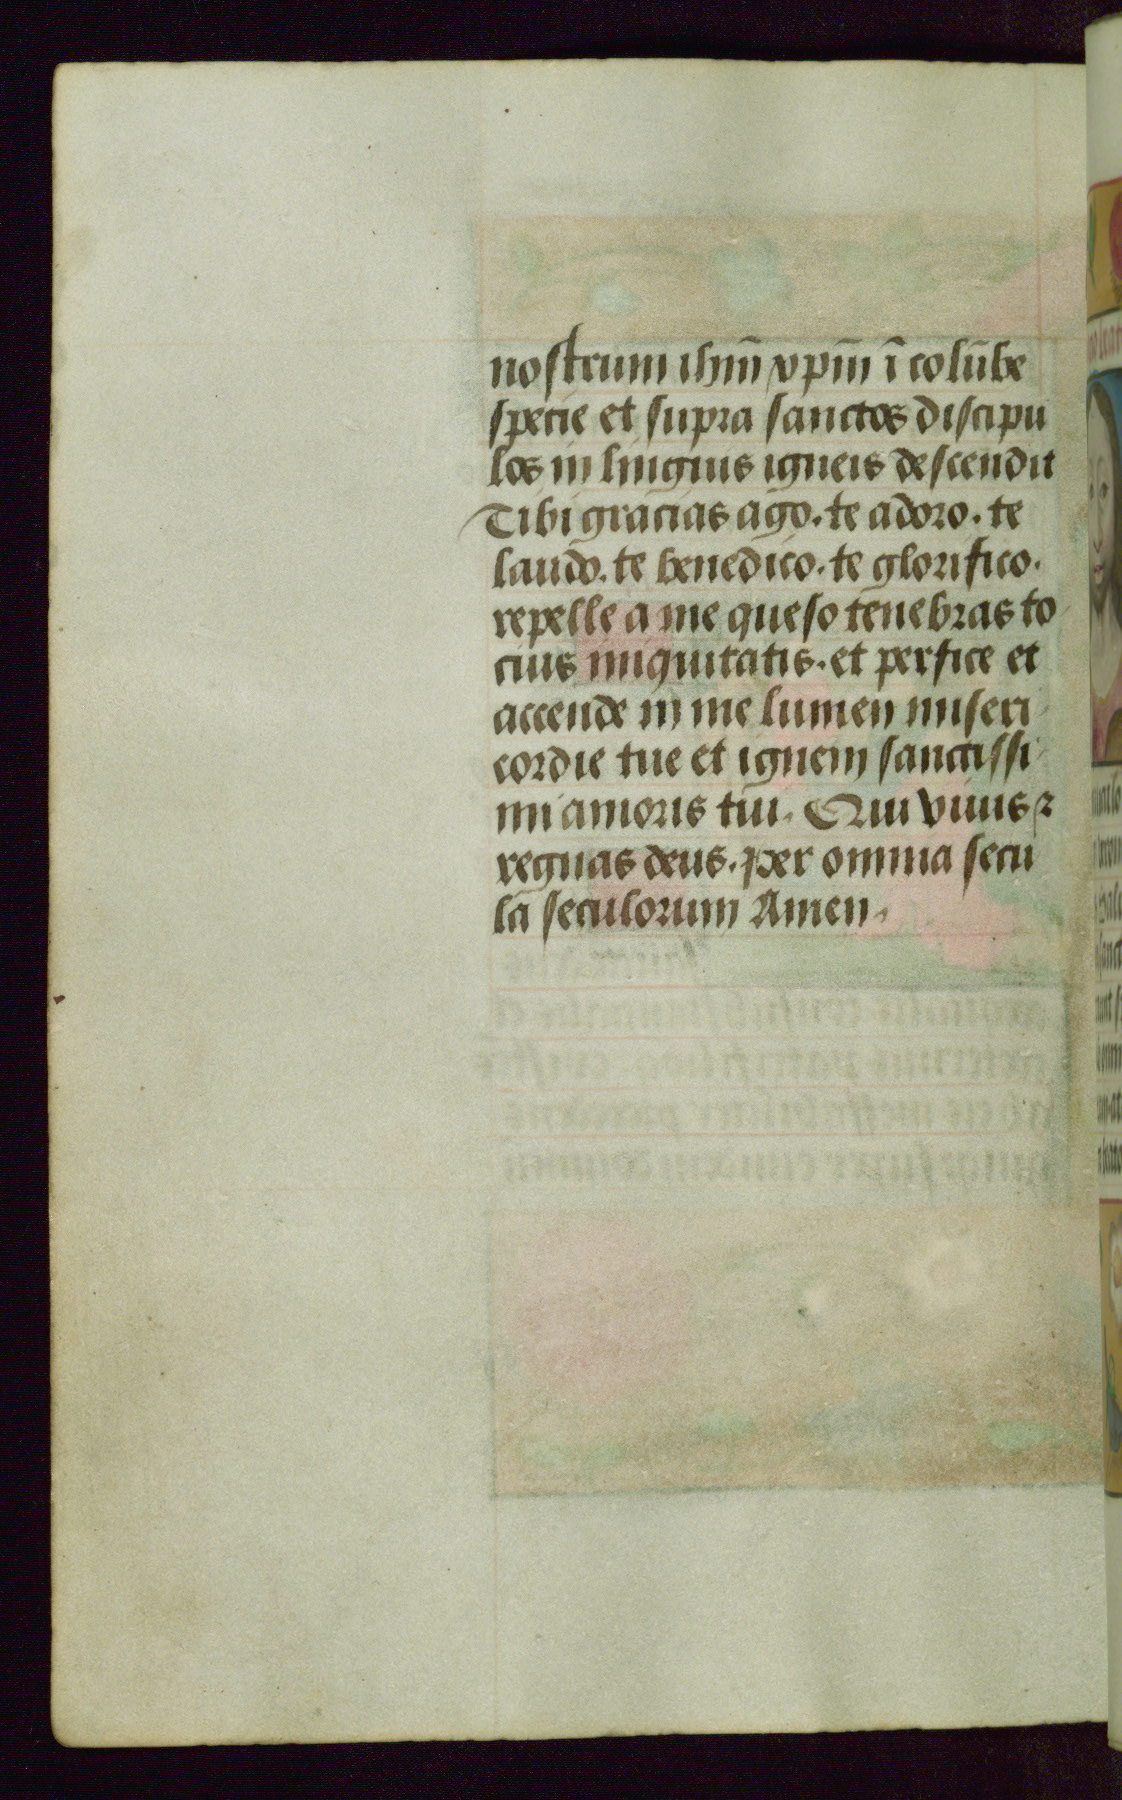 nostrum ihm̄ xpm̄ ī colūbe
specie et supra sanctos discipu
los in linguis igneis descendit
Tibi gracias ago. te adoro. te
laudo. te benedico. te glorifico.
repelle a me queso tenebras to
cius iniquitatis. et perfice et
accende in me lumen miseri
cordie tue et ignem sanctissi
mi amoris tui. Qui viuis ⁊
regnas deus. per omnia secu
la seculorum Amen.